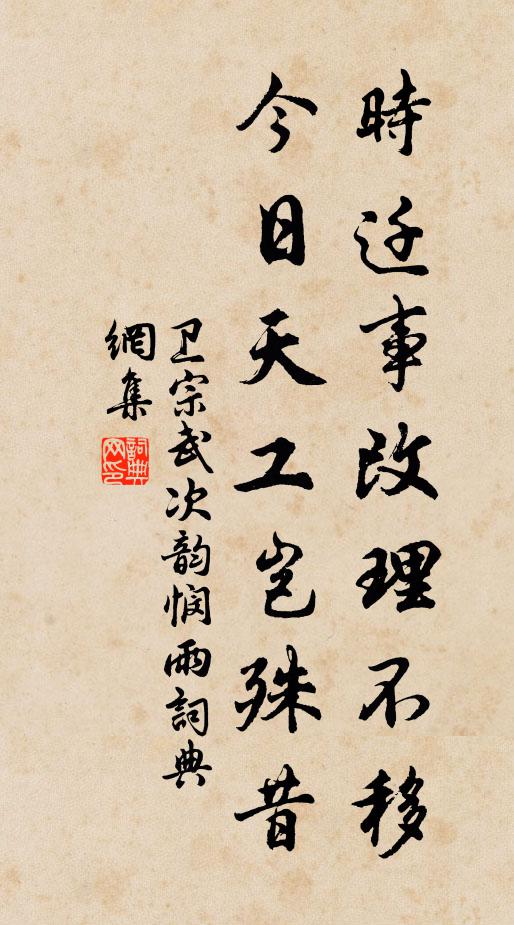 時迁事改理不移
今日天工岂殊昔
卫宗武次韵悯雨詞典
網集
詞典网印